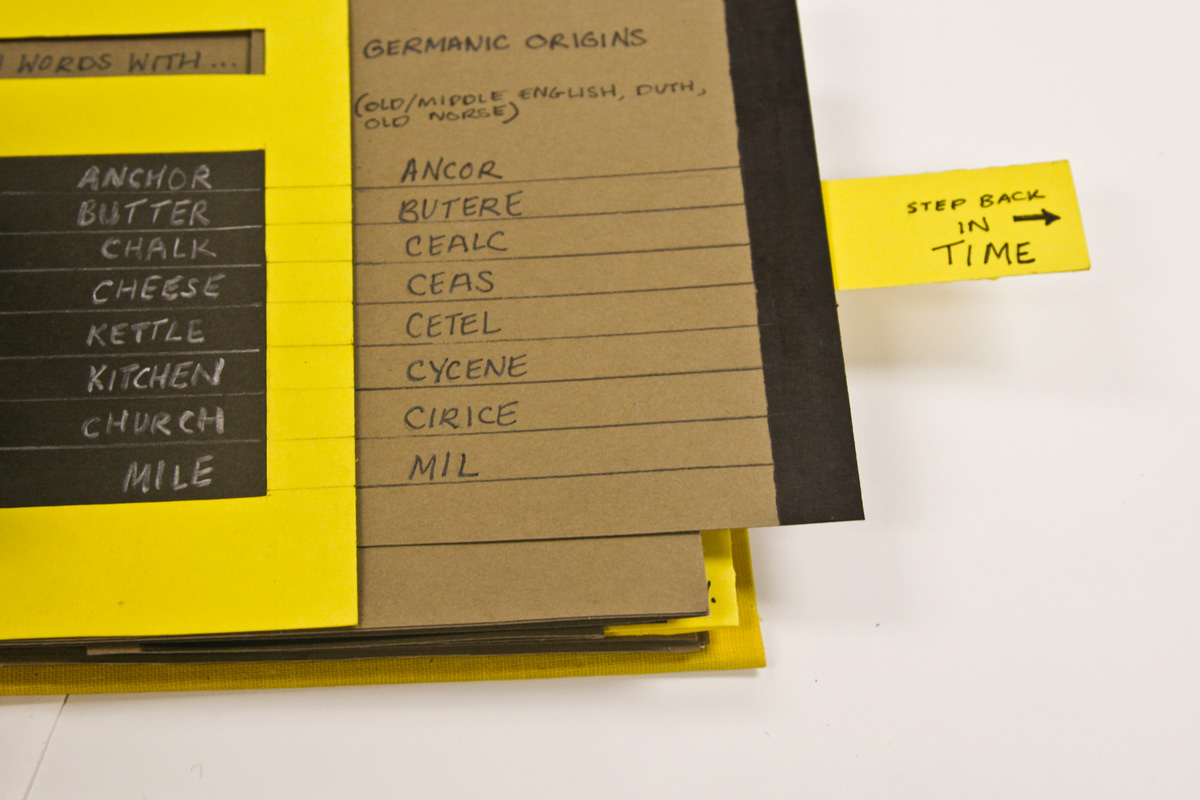 WORDS WITH...
GERMANIC ORIGINS
(OLD/MIDDLE ENGLISH, DUTH,
OLD NORSE)
ANCHOR ANCOR
BUTTER BUTERE
CHALK CEALC
CHEESE CEAS
KETTLE CETEL
KITCHEN CYCENE
CHURCH CIRICE
MILE MIL
STEP BACK
IN →
TIME